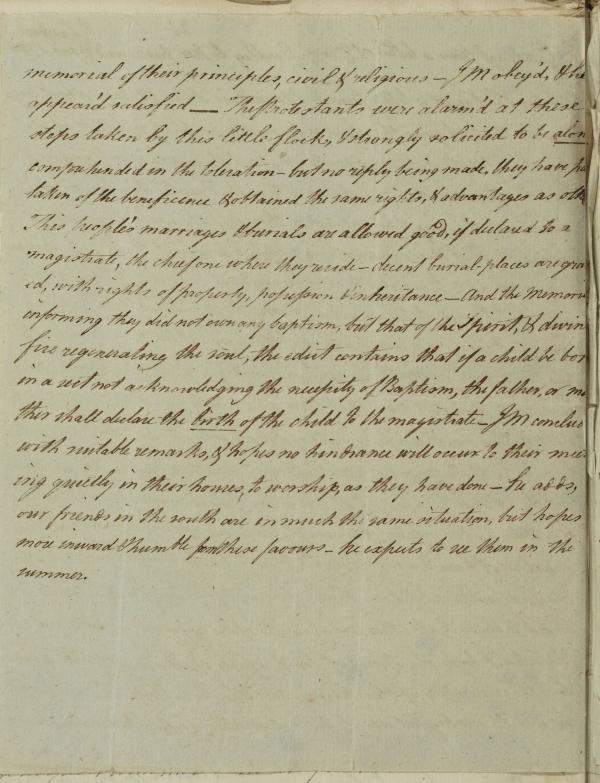 memorial of their principles, civil & religious – JM obey'd, & he
appear'd satisfied — The Protestants were alarm'd at these
steps taken by this little flock, & strongly solicited to be alon
comprehended in the toleration – but no reply being made, they have pa
taken of the beneficence & obtained the same rights, & advantages as oth
This people's marriages & burials are allowed good, if declared to a
magistrate, the chief one where they reside – decent burial-places are gra
ed, with rights of property, possession & inheritance – And the Memori
informing they did not own any baptism, but that of the Spirit, & divin
fire regenerating the soul, the edict contains that if a child be bor
in a sect not acknowledging the necessity of Baptism, the father, or mo
ther shall declare the birth of the child to the magistrate – JM conclud
with suitable remarks, & hopes no hindrance will occur to their mee
ing quietly in their houses, to worship, as they have done – he adds,
our friends in the south are in much the same situation, but hopes
more inward & humble for these favours – he expects to see them in the
summer.